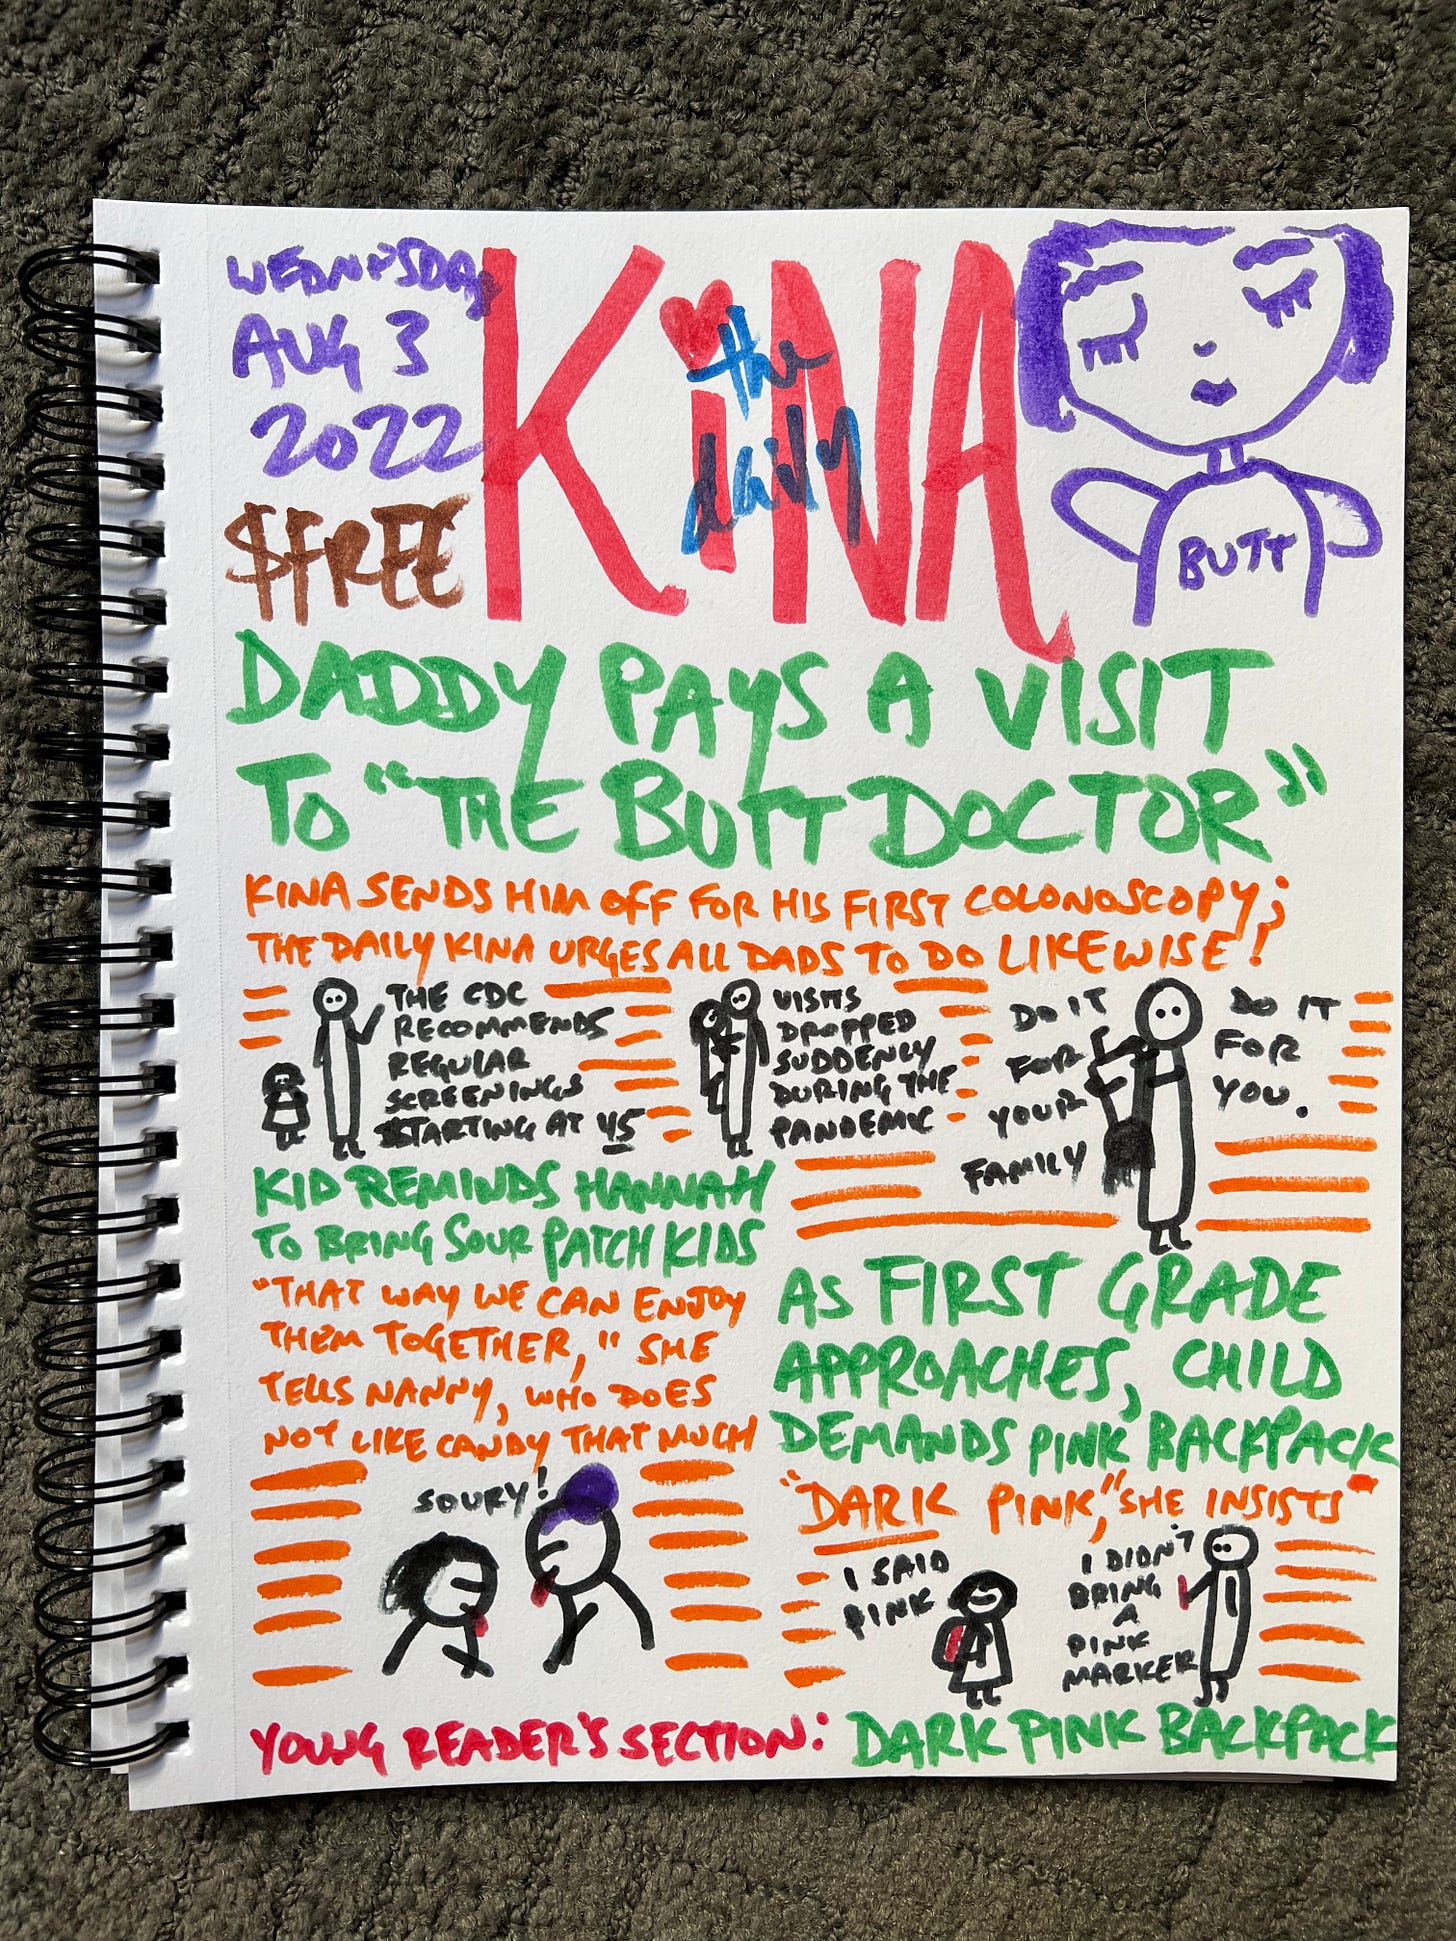 WEDNESDAY
AUG 3
2022
$FREE
the
daily
KiNA
BUTT
DADDY PAYS A VISIT
TO "THE BUTT DOCTOR"
KINA SENDS HIM OFF FOR HIS FIRST COLONOSCOPY;
THE DAILY KINA URGES ALL DADS TO DO LIKEWISE!
THE CDC
RECOMMENDS
REGULAR
SCREENINGS
STARTING AT 45
VISITS
DROPPED
SUDDENLY
DURING THE
PANDEMIC
DO IT
FOR
YOUR
FAMILY
DO IT
FOR
YOU.
KID REMINDS HANNAH
TO BRING SOUR PATCH KIDS
"THAT WAY WE CAN ENJOY
THEM TOGETHER," SHE
TELLS NANNY, WHO DOES
NOT LIKE CANDY THAT MUCH
SOURY!
AS FIRST GRADE
APPROACHES, CHILD
DEMANDS PINK BACKPACK
"DARK PINK," SHE INSISTS"
I SAID
PINK
I DIDN'T
BRING
A
PINK
MARKER
YOUNG READER'S SECTION: DARK PINK BACKPACK